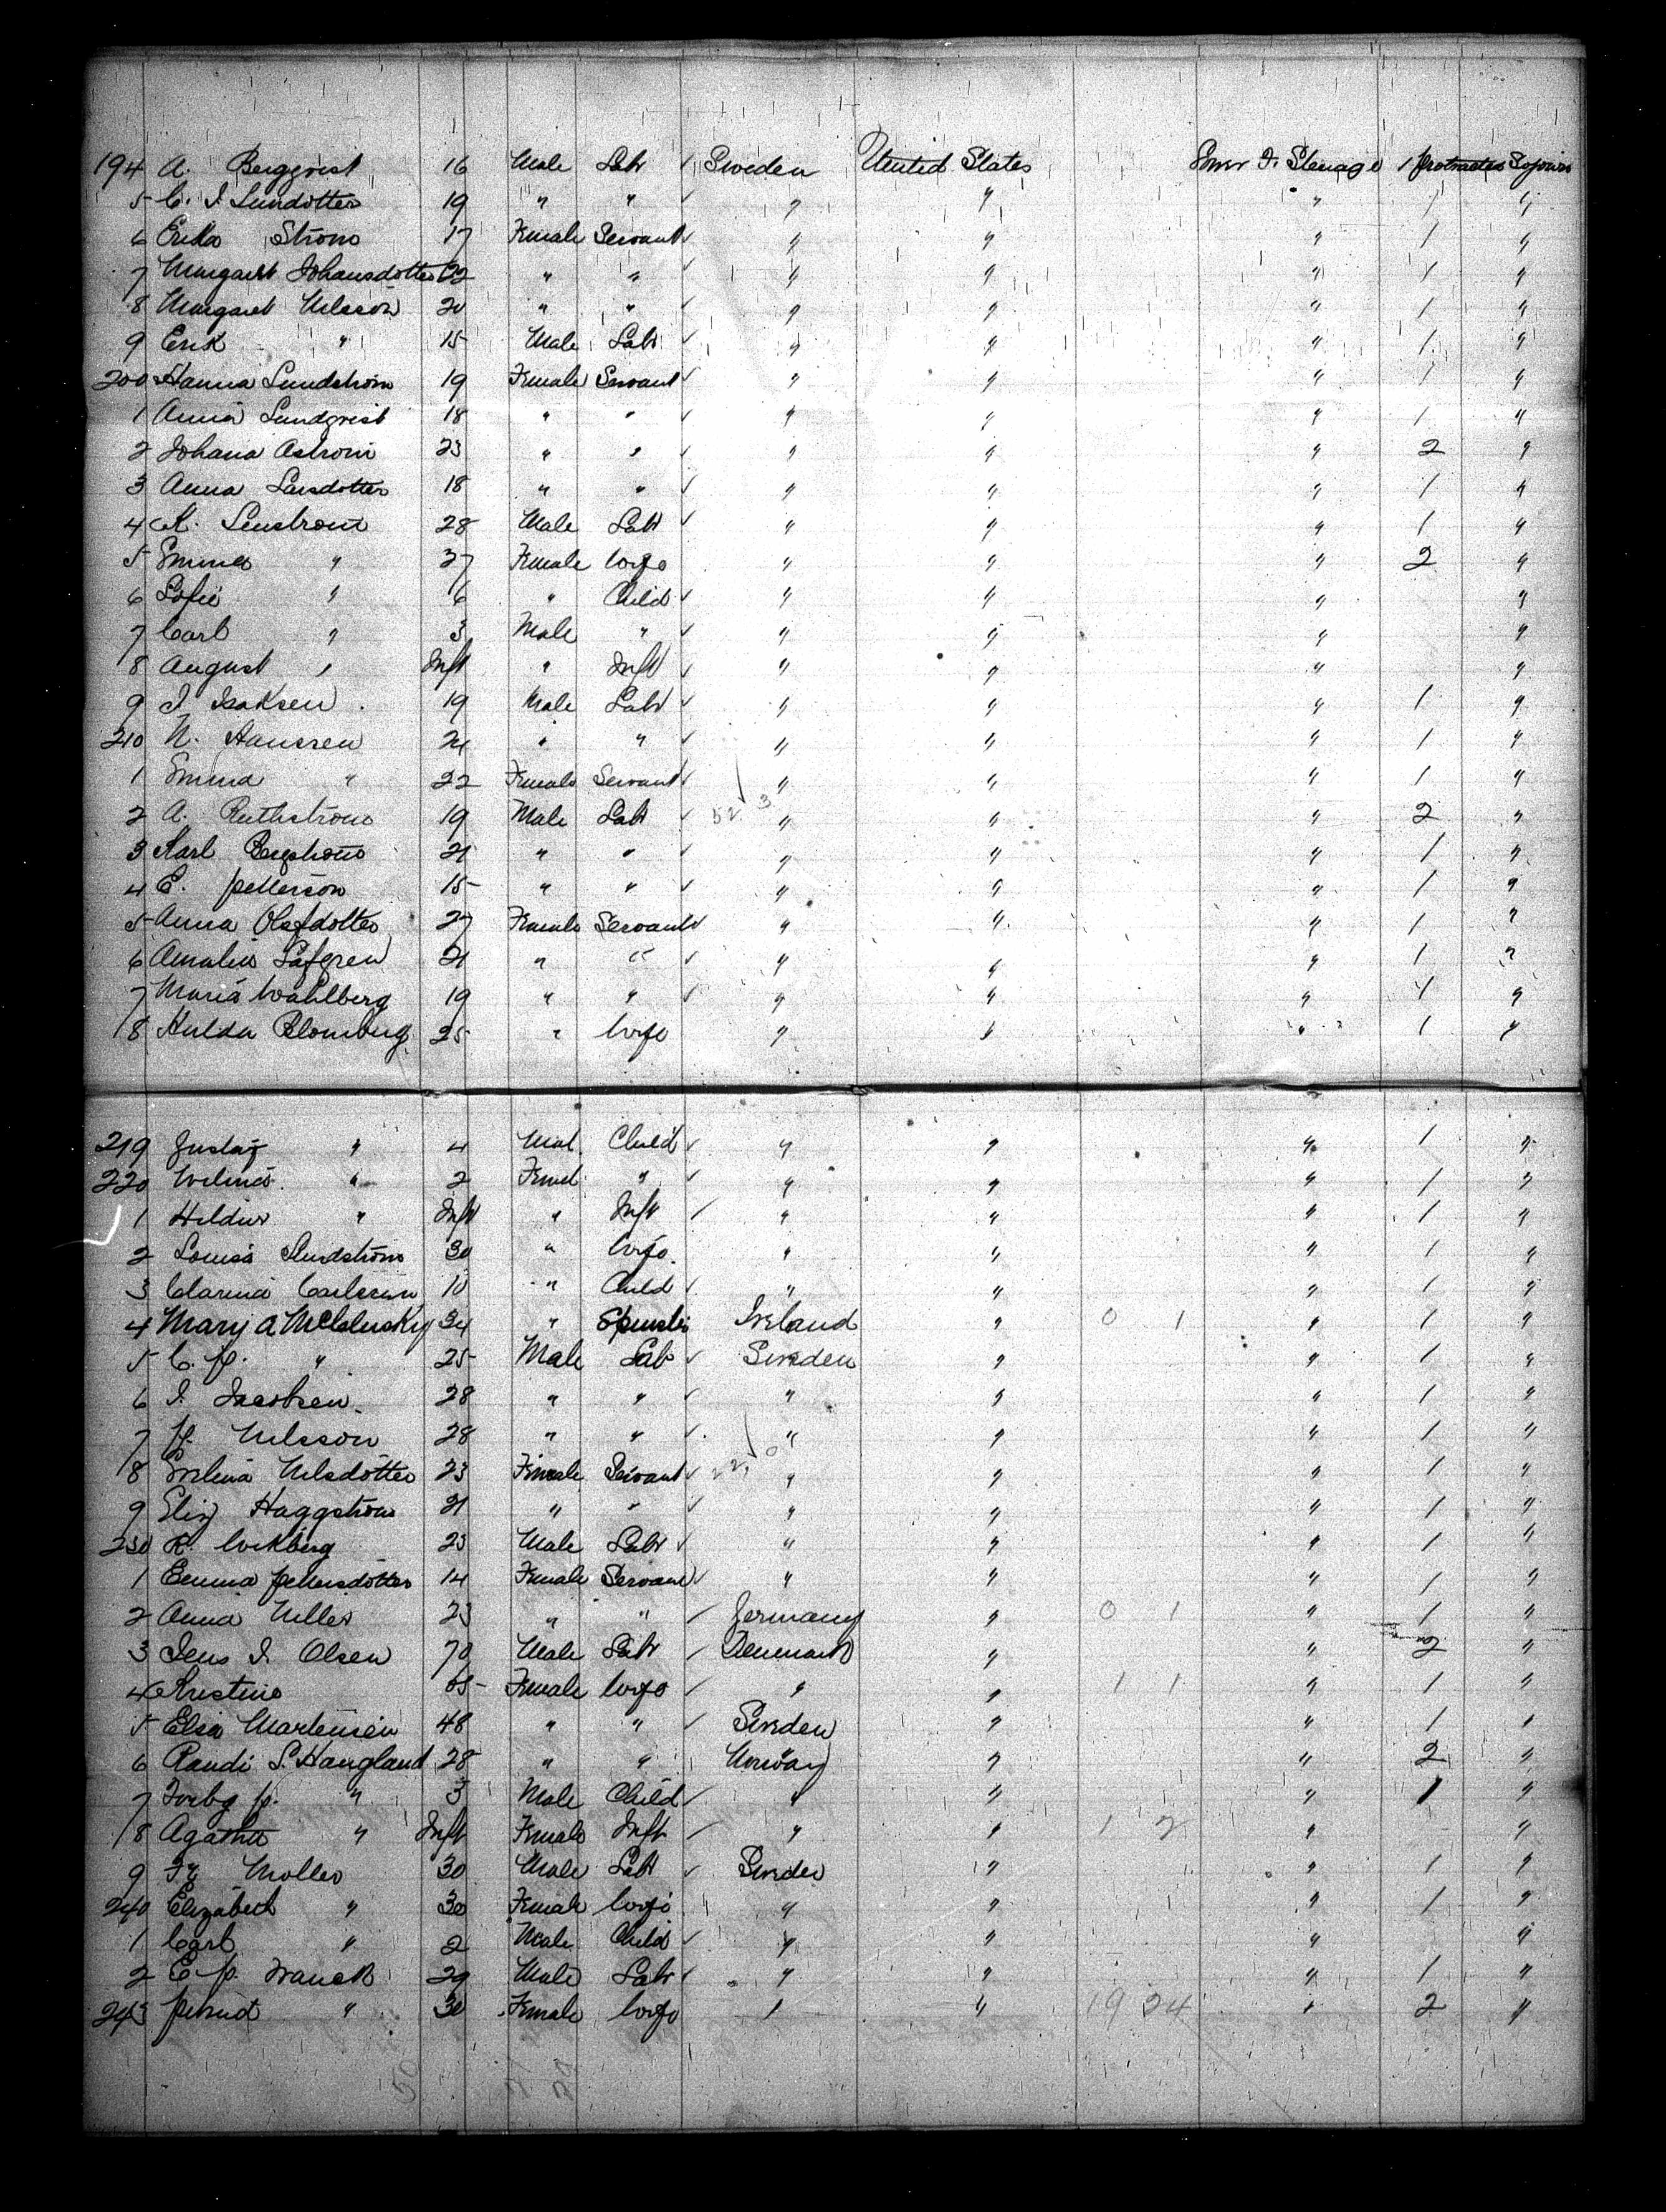 194 A. Bergqvist 16 Male Labr ✓ Sweden United States Lower F. Steerage 1 protracted Sojourn
5 C. J. Lundotter 19 " " ✓ " " " 1 "
6 Erika Strom 17 Female Servant ✓ " " " 1 "
7 Margaret Johansdotter 22 " " ✓ " " " 1 "
8 Margaret Nilsson 20 " " ✓ " " " 1 "
9 Erik " 15 Male Labr ✓ " " " 1 "
200 Hanna Lundstrom 19 Female Servant ✓ " " " 1 "
1 Anna Lundqvist 18 " " ✓ " " " 1 "
2 Johana Astrom 23 " " ✓ " " " 2 "
3 Anna Larsdotter 18 " " ✓ " " " 1 "
4 K. Lenstrom 28 Male Labr ✓ " " " 1 "
5 Emma " 27 Female Wife " " " 2 "
6 Sofie " 6 " Child ✓ " " " "
7 Carl " 3 Male " ✓ " " " "
8 August " Inft " Inft ✓ " " " "
9 J Isaksen 19 Male Labr ✓ " " " 1 "
210 N. Hanssen 24 " " ✓ " " " 1 "
1 Emma " 22 Female Servant ✓ " " " 1 "
2 A. Ruthstrom 19 Male Labr ✓ 52 3 " " " 2 "
3 Karl Bergstrom 21 " " ✓ " " " 1 "
4 E. Petterson 15 " " ✓ " " " 1 "
5 Anna Olofdotter 27 Female Servant ✓ " " " 1 "
6 Amalia Lofgren 21 " " ✓ " " " 1 "
7 Maria Wahlberg 19 " " ✓ " " " 1 "
8 Hulda Blomberg 25 " Wife " " " 1 "
219 Gustaf " 4 Mal. Child ✓ " " " 1 "
220 Wilma " 2 Femal " ✓ " " " 1 "
1 Hildur " Inft " Inft ✓ " " " 1 "
2 Louisa Lundstrom 30 " Wife " " " 1 "
3 Clarina Carlsson 10 " Child ✓ " " " 1 "
4 Mary A McCluskey 34 " Spinster Ireland " 0 1 " 1 "
5 C. P. " 25 Male Labr ✓ Sweden " " 1 "
6 J. Jacobsen 28 " " ✓ " " " 1 "
7 P. Nilsson 28 " " ✓ " " " 1 "
8 Nilsdotter 23 Female Servant ✓ 22 0 " " " 1 "
9 Eliz Haggstrom 21 " " ✓ " " " 1 "
230 R. Wikberg 23 Male Labr ✓ " " " 1 "
1 Emma Pettersdotter 14 Female Servant ✓ " " " 1 "
2 Anna 23 " " ✓ Germany " 0 1 " 1 "
3 Jens J. Olsen 70 Male Labr ✓ Denmark " " 2 "
4 Kristine 65 Female Wife ✓ " " 1 1 " 1 "
5 Elsa Martensen 48 " " ✓ Sweden " " 1 "
6 Randi S. Haugland 28 " " Norway " " 2 "
7 Torbg P. " 3 Male Child ✓ " " " 1 "
8 Agatha " Inft Female Inft ✓ " " 1 2 " "
9 Fr Moller 30 Male Labr ✓ Sweden " " 1 "
240 Elizabeth " 30 Female Wife " " " 1 "
1 Carl " 2 Male Child ✓ " " " "
2 E. P. Franck 29 Male Labr ✓ " " " 1 "
243 " 30 Female Wife " " 19 24 " 2 "